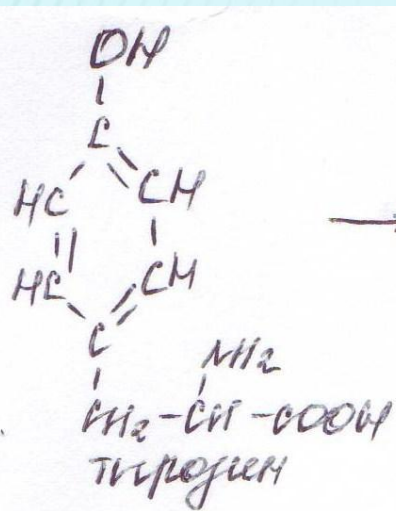 OH
C
HC CH
HC CH
C
NH₂
CH₂-CH-COOH
тирозин